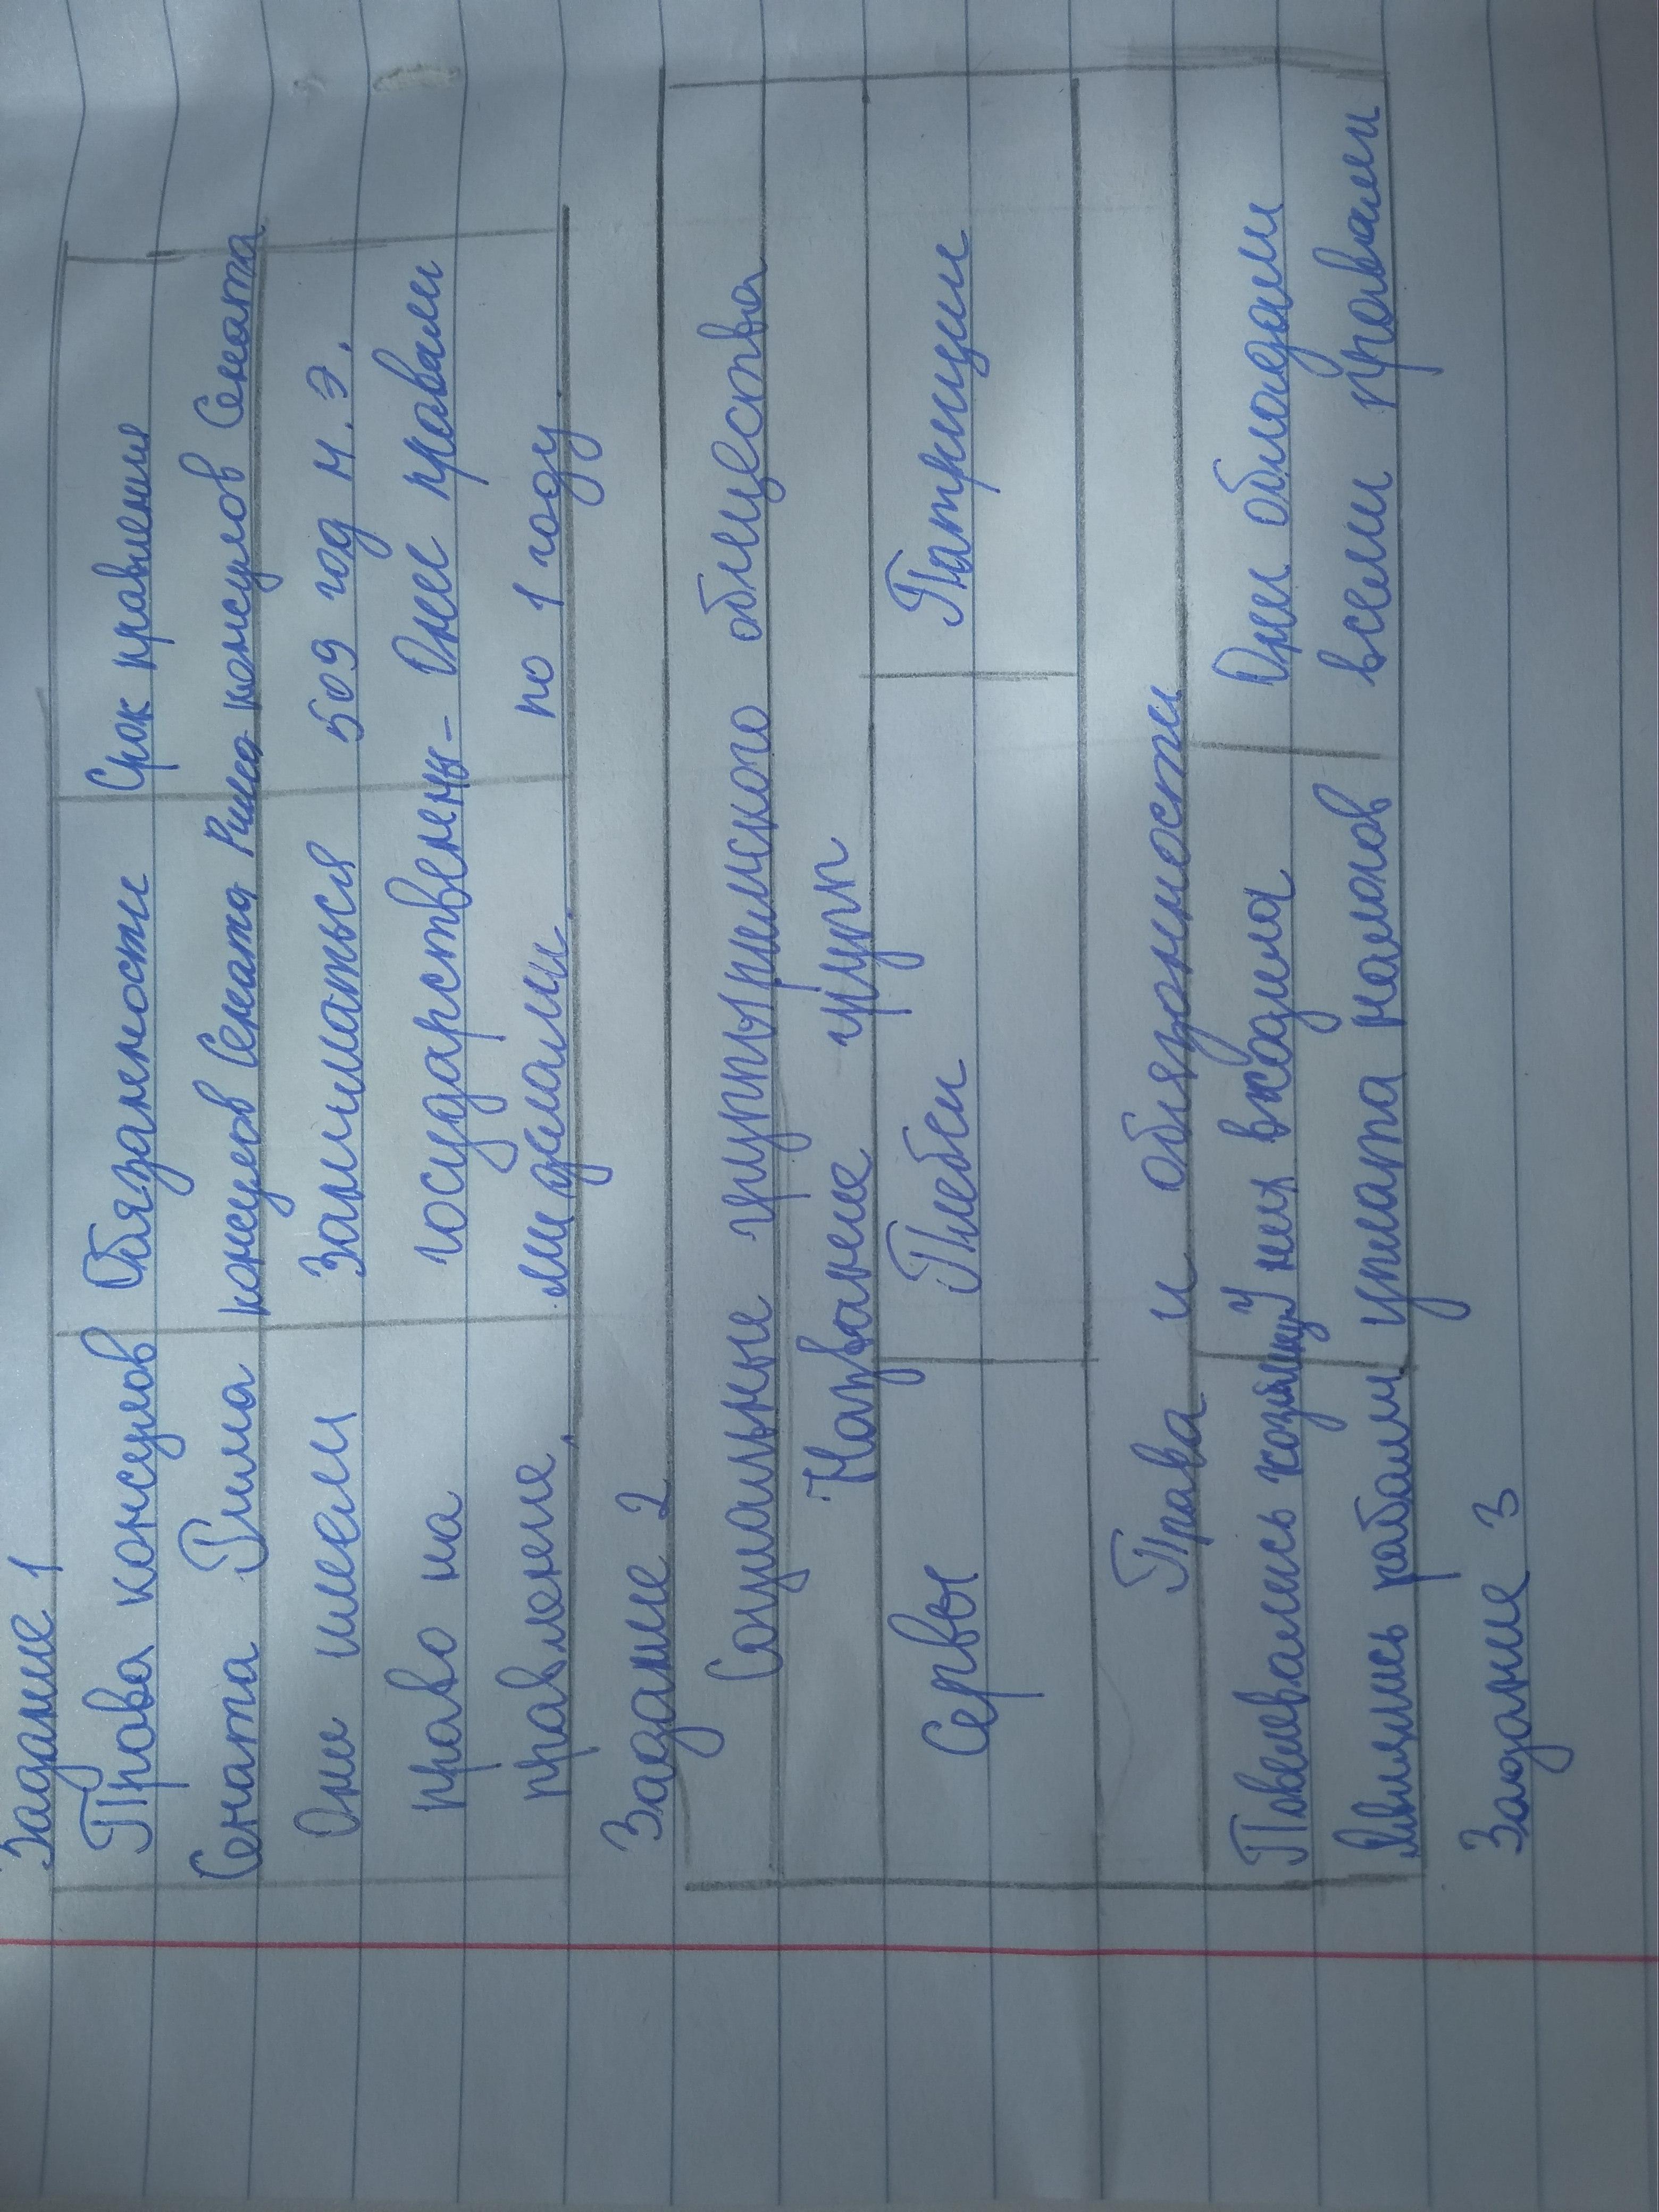 Задание 1
Права консулов Обязанности Срок правления
Сената Рима консулов Сената Рима консулов Сената
Они имели Заниматься 509 год н.э.
право на государственны- Они правили
правление. ми делами. по 1 году.
Задание 2
Социальные группы римского общества
Название групп
Сервы Плебеи Патриции
Права и обязанности
Повиновались хозяину У них входила Они обладали
Являлись рабами уплата налогов всеми правами
Задание 3